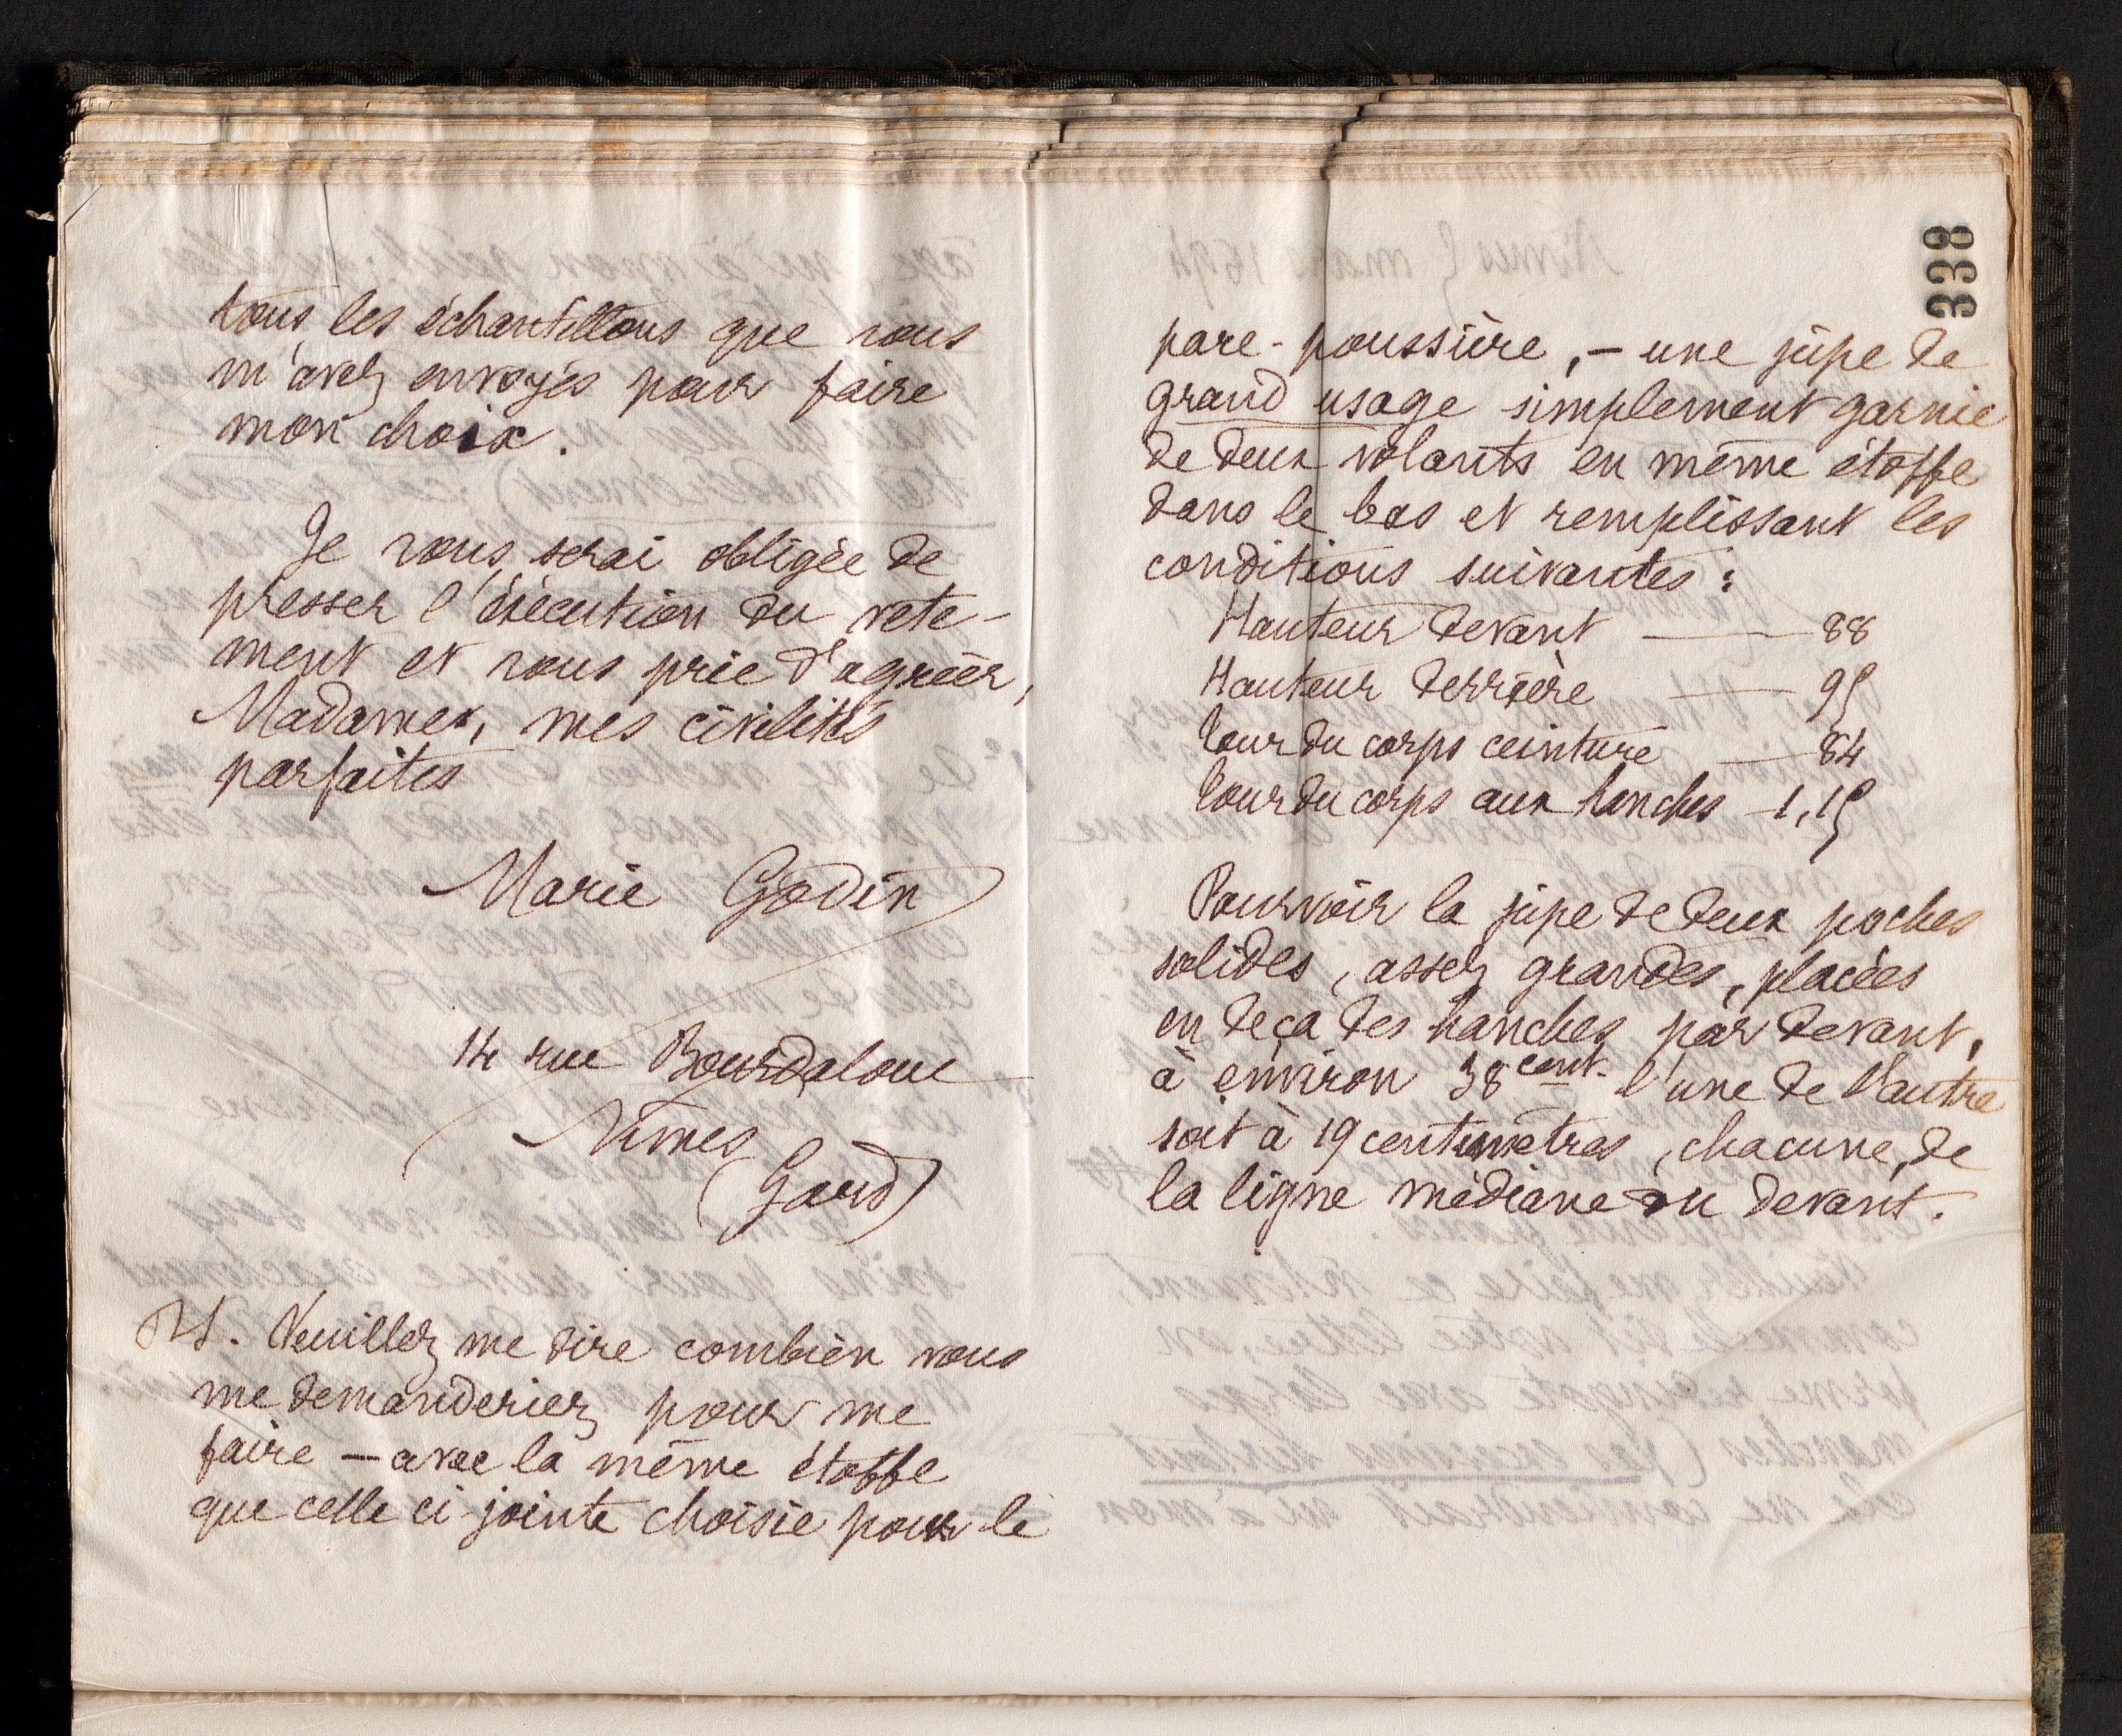 tous les échantillons que vous
m'avez envoyés pour faire
mon choix.
Je vous serai obligée de
presser l'éxécution du vete-
ment et vous prie d'agréer,
Madame, mes civilités
parfaites
Marie Godin
14 rue Bourdaloue
Nîmes
(Gard)
PS. Veuillez me dire combien vous
me demanderiez pour me
faire — avec la même étoffe
que celle ci-jointe choisie pour le
338
pare-poussière, — une jupe de
grand usage simplement garnie
de deux volants en même étoffe
dans le bas et remplissant les
conditions suivantes :
Hauteur devant — 88
Hauteur derrière — 95
Tour du corps ceinture — 84
Tour du corps aux hanches — 1,15
Pourvoir la jupe de deux poches
solides, assez grandes, placées
en deça des hanches par devant,
à environ 38 cent. l'une de l'autre
soit à 19 centimètres, chacune, de
la ligne médiane du devant.